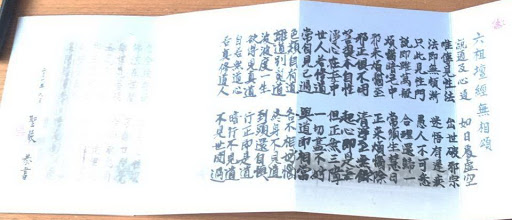 六祖壇經無相頌
說通及心通 如日處虛空
唯傳見性法 出世破邪宗
法即無頓漸 迷悟有遲疾
只此見性門 愚人不可悉
說即雖萬般 合理還歸一
煩惱闇宅中 常須生慧日
邪來煩惱至 正來煩惱除
邪正俱不用 清淨至無餘
菩提本自性 起心即是妄
淨心在妄中 但正無三障
世人若修道 一切盡不妨
常自見己過 與道即相當
色類自有道 各不相妨惱
離道別覓道 終身不見道
波波度一生 到頭還自懊
欲得見真道 行正即是道
自若無道心 暗行不見道
若真修道人 不見世間過
聖嚴 恭書